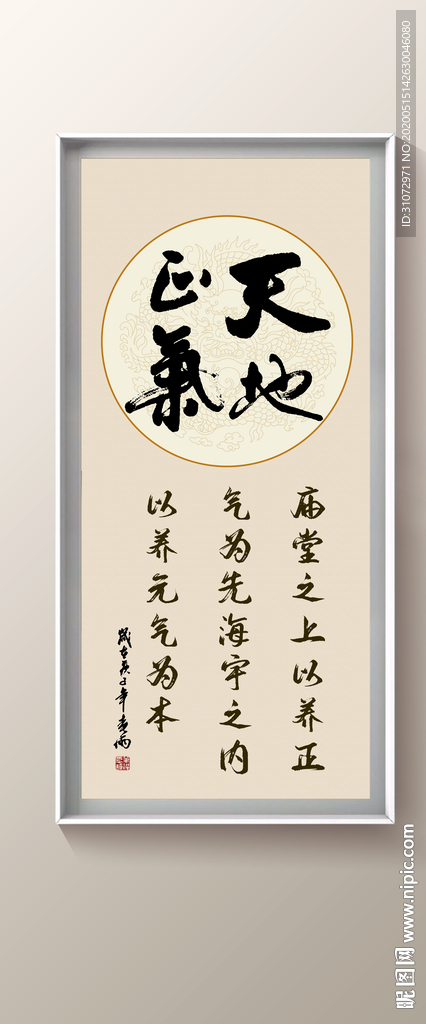 天地
正氣
庙堂之上以养正
气为先海宇之内
以养元气为本
歲在庚子年春雨
ID:31072971 NO:20200515142630046080
昵图网 www.nipic.com